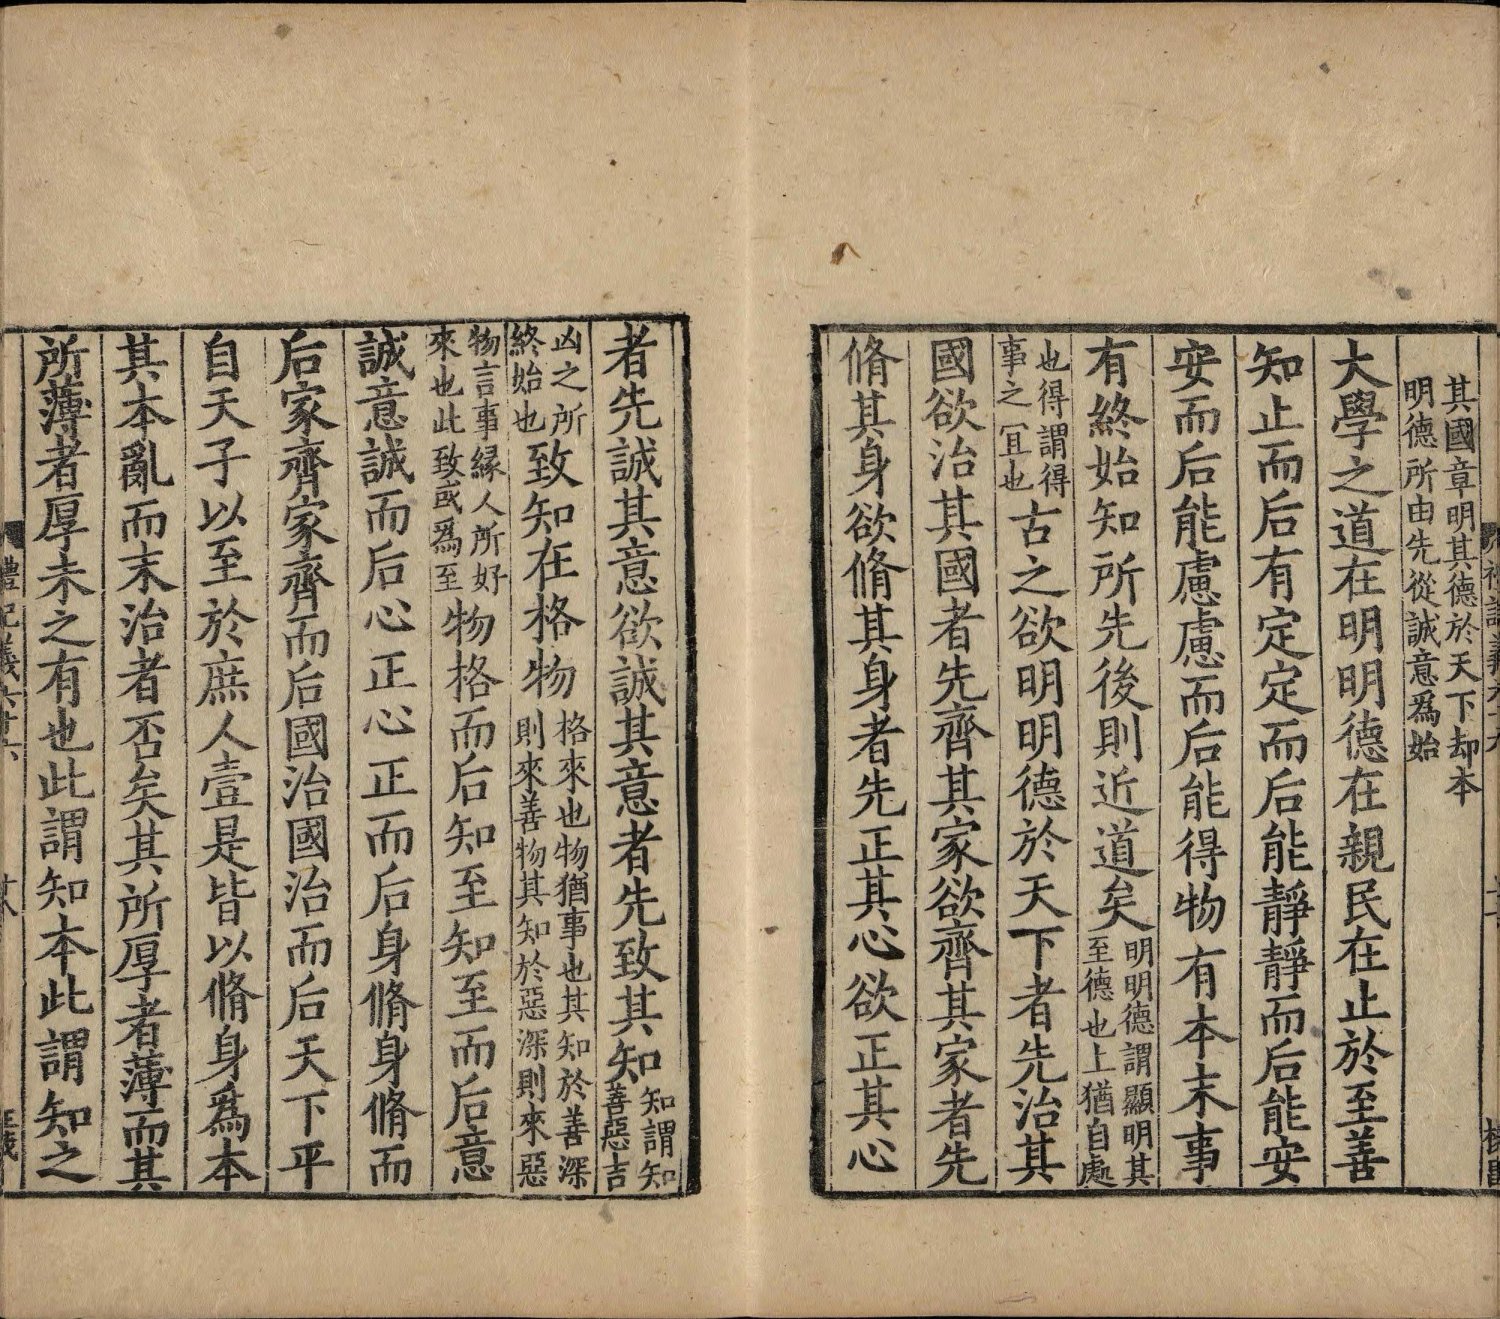 其國章明其德於天下却本
明德所由先從誠意爲始
大學之道在明明德在親民在止於至善
知止而后有定定而后能靜靜而后能安
安而后能慮慮而后能得物有本末事
有終始知所先後則近道矣明明德謂顯明其至德也上猶自處
也得謂得事之冝也古之欲明明德於天下者先治其
國欲治其國者先齊其家欲齊其家者先
脩其身欲脩其身者先正其心欲正其心
者先誠其意欲誠其意者先致其知知謂知善惡吉
凶之所終始也致知在格物格來也物猶事也其知於善深則來善物其知於惡深則來惡
物言事緣人所好來也此致或爲至物格而后知至知至而后意
誠意誠而后心正心正而后身脩身脩而
后家齊家齊而后國治國治而后天下平
自天子以至於庶人壹是皆以脩身爲本
其本亂而末治者否矣其所厚者薄而其
所薄者厚未之有也此謂知本此謂知之
禮記義六十六
十八